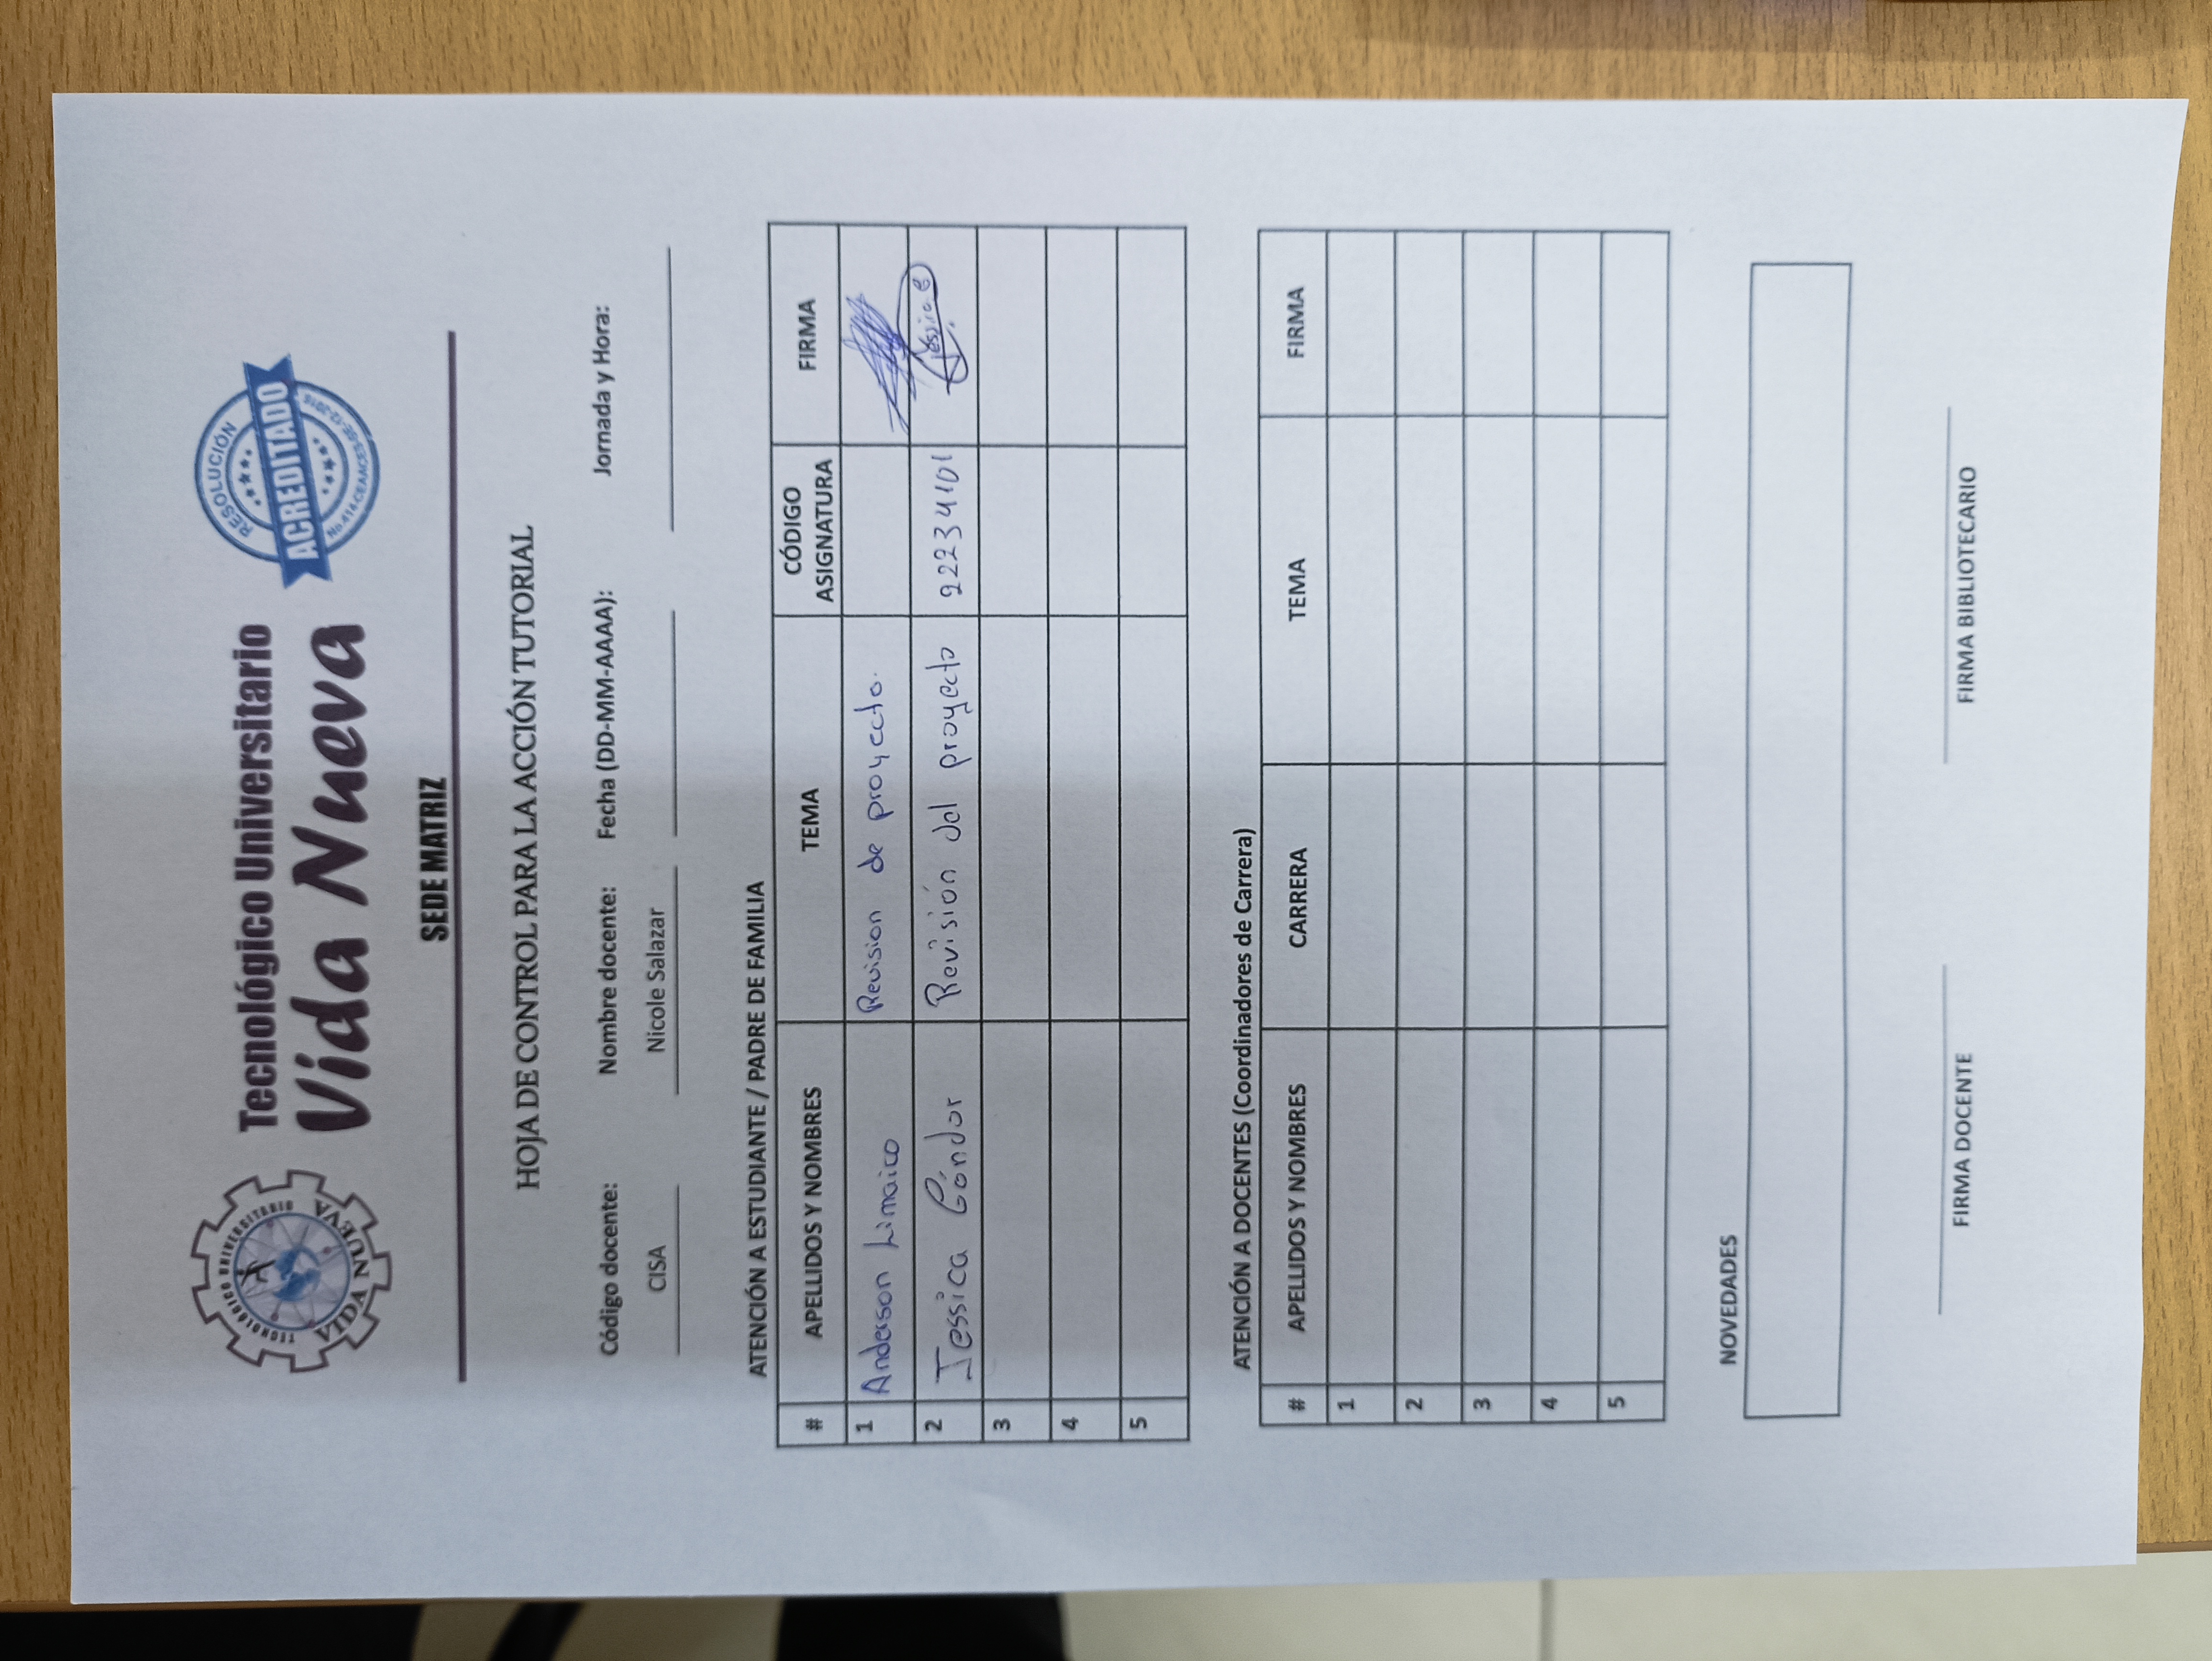 TECNOLÓGICO UNIVERSITARIO
VIDA NUEVA
Tecnológico Universitario
Vida Nueva
RESOLUCIÓN
ACREDITADO
SEDE MATRIZ
HOJA DE CONTROL PARA LA ACCIÓN TUTORIAL
Código docente: Nombre docente: Fecha (DD-MM-AAAA): Jornada y Hora:
CISA Nicole Salazar
ATENCIÓN A ESTUDIANTE / PADRE DE FAMILIA
# APELLIDOS Y NOMBRES TEMA CÓDIGO ASIGNATURA FIRMA
1 Anderson Limaico Revision de proyecto.
2 Jessica Cóndor Revisión del proyecto 22234101 Jessica C
3
4
5
ATENCIÓN A DOCENTES (Coordinadores de Carrera)
# APELLIDOS Y NOMBRES CARRERA TEMA FIRMA
1
2
3
4
5
NOVEDADES
FIRMA DOCENTE FIRMA BIBLIOTECARIO